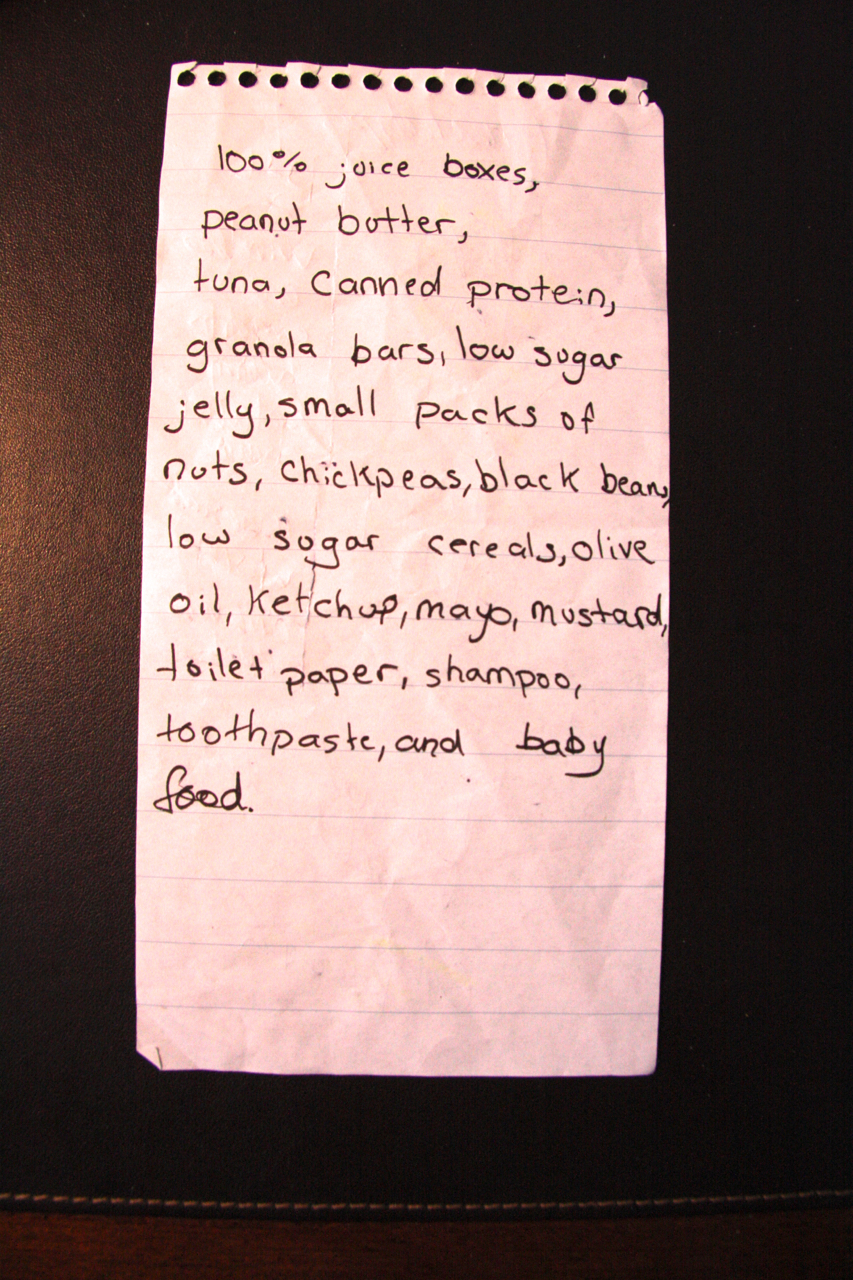 100% juice boxes,
peanut butter,
tuna, Canned protein,
granola bars, low sugar
jelly, small packs of
nuts, chickpeas, black beans,
low sugar cereals, olive
oil, ketchup, mayo, mustard,
toilet paper, shampoo,
toothpaste, and baby
food.